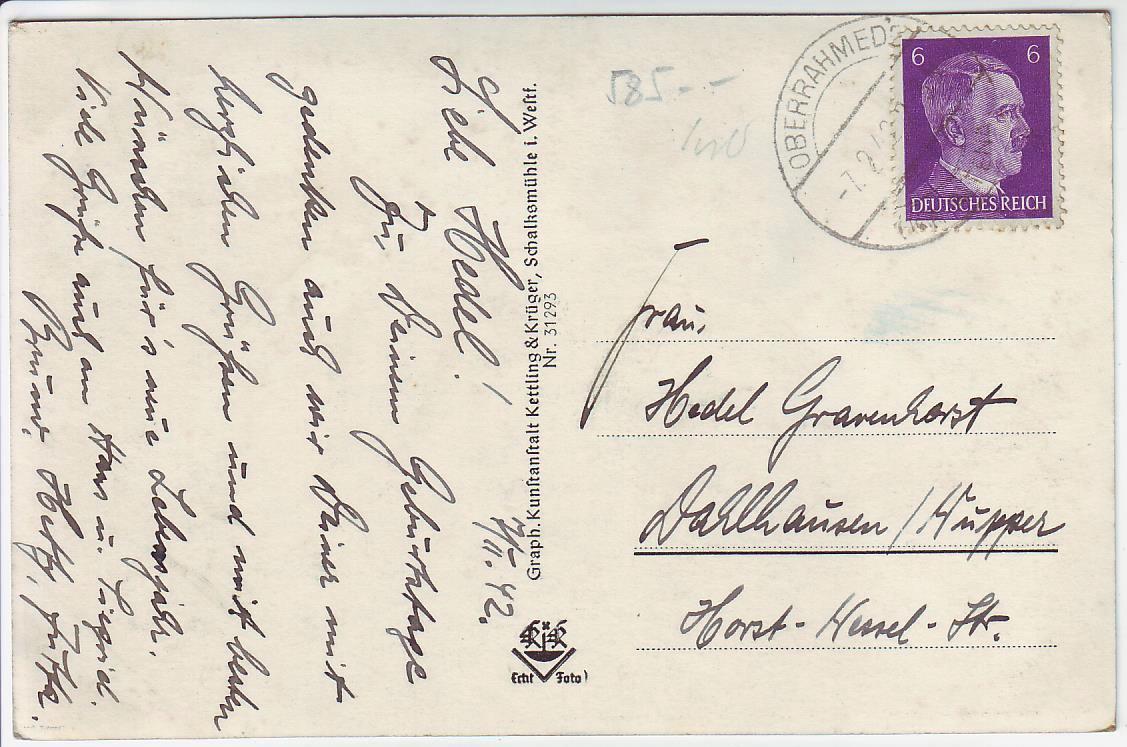 Liebe Hedel! 7/II. 42.
Zu Deinem Geburtstage
gedenken auch wir Deiner mit
herzlichen Grüßen und mit besten
Wünschen für's neue Lebensjahr.
Viele Grüße auch an Hans u.
Bruno,
Graph. Kunstanstalt Kettling & Krüger, Schalksmühle i. Westf.
Nr. 31293
Echt Foto
585.--
OBERRAHMED
6 6
DEUTSCHES REICH
Frau
Hedel Gravenhorst
Dahlhausen/Wupper
Horst-Wessel-Str.